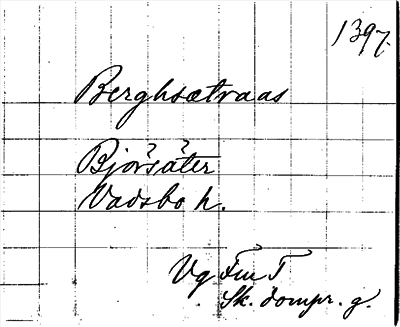 1397.
Berghsætraas
? ?
Bjorsäter
Vadsbo h.
Vg Fm T
Sk. dompr. g.